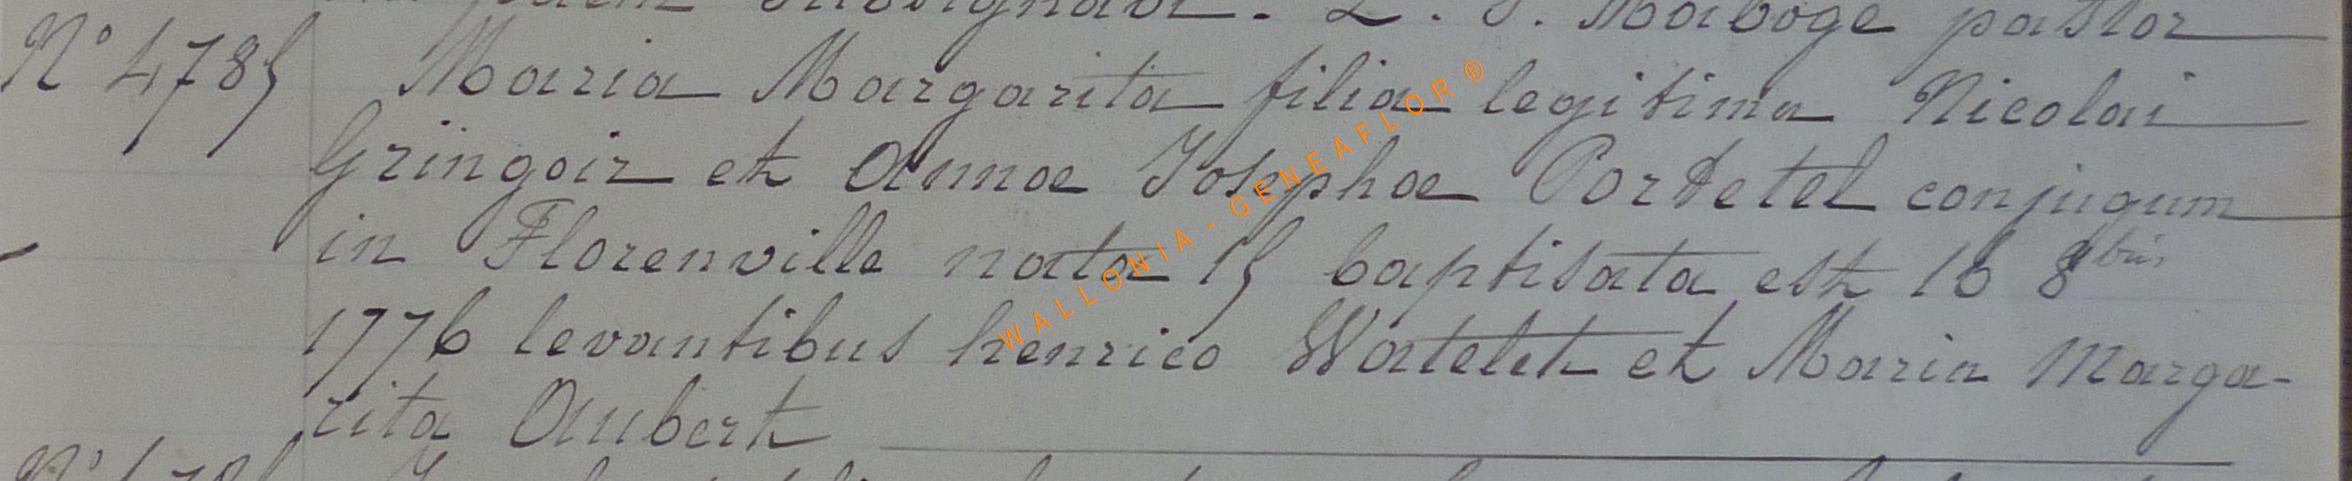 L. J. Maboge pastor
N° 4785 Maria Margarita filia legitima Nicolai
Gringoir et Annae Josephae Pordetel conjugum
in Florenville nata 15 baptisata est 16 8bris
1776 levantibus henrico Watelet et Maria Marga-
rita Aubert
WALLONIA - GENEAFLOR ®